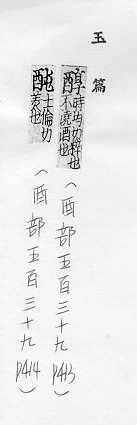 玉篇
醇時均切粹也不澆酒也(酉部五百三十九 p413)
士倫切美也(酉部五百三十九 p414)